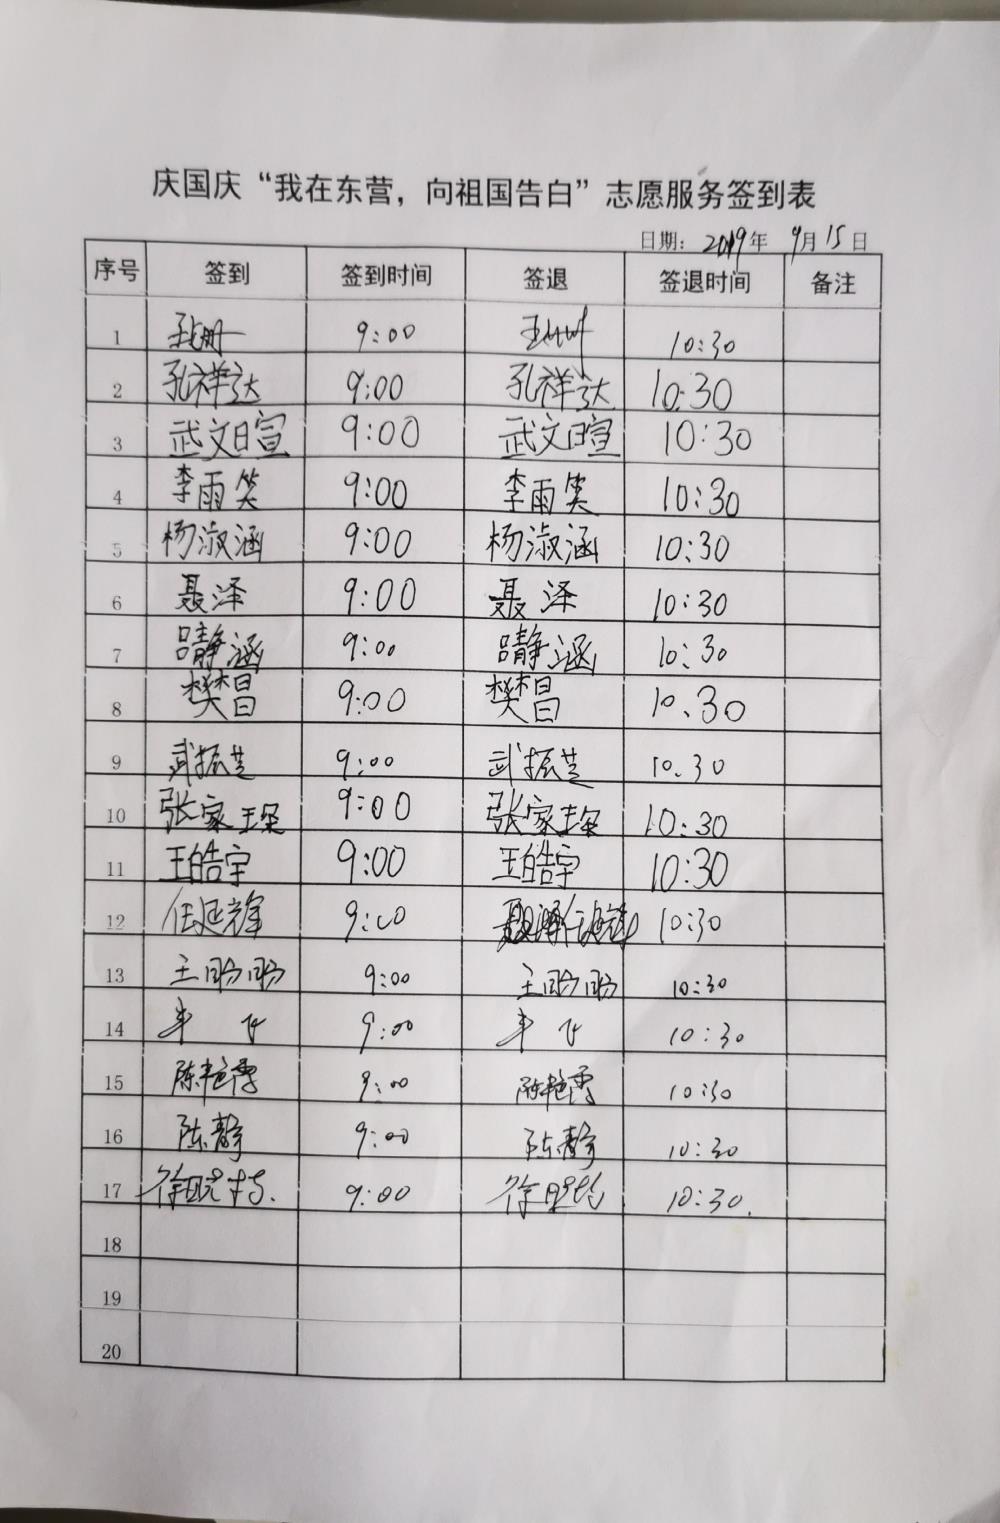 庆国庆“我在东营，向祖国告白”志愿服务签到表
日期：2019年 9月15日
序号 签到 签到时间 签退 签退时间 备注
1 9:00 10:30
2 孔祥达 9:00 孔祥达 10:30
3 武文暄 9:00 武文暄 10:30
4 李雨笑 9:00 李雨笑 10:30
5 杨淑涵 9:00 杨淑涵 10:30
6 聂泽 9:00 聂泽 10:30
7 吕静涵 9:00 吕静涵 10:30
8 樊昌 9:00 樊昌 10:30
9 武振芝 9:00 武振芝 10.30
10 张家琛 9:00 张家琛 10:30
11 王皓宇 9:00 王皓宇 10:30
12 任延锋 9:00 10:30
13 王盼盼 9:00 王盼盼 10:30
14 9:00 10:30
15 陈艳霞 9:00 陈艳霞 10:30
16 陈静 9:00 陈静 10:30
17 徐晓 9:00 徐晓 10:30.
18
19
20